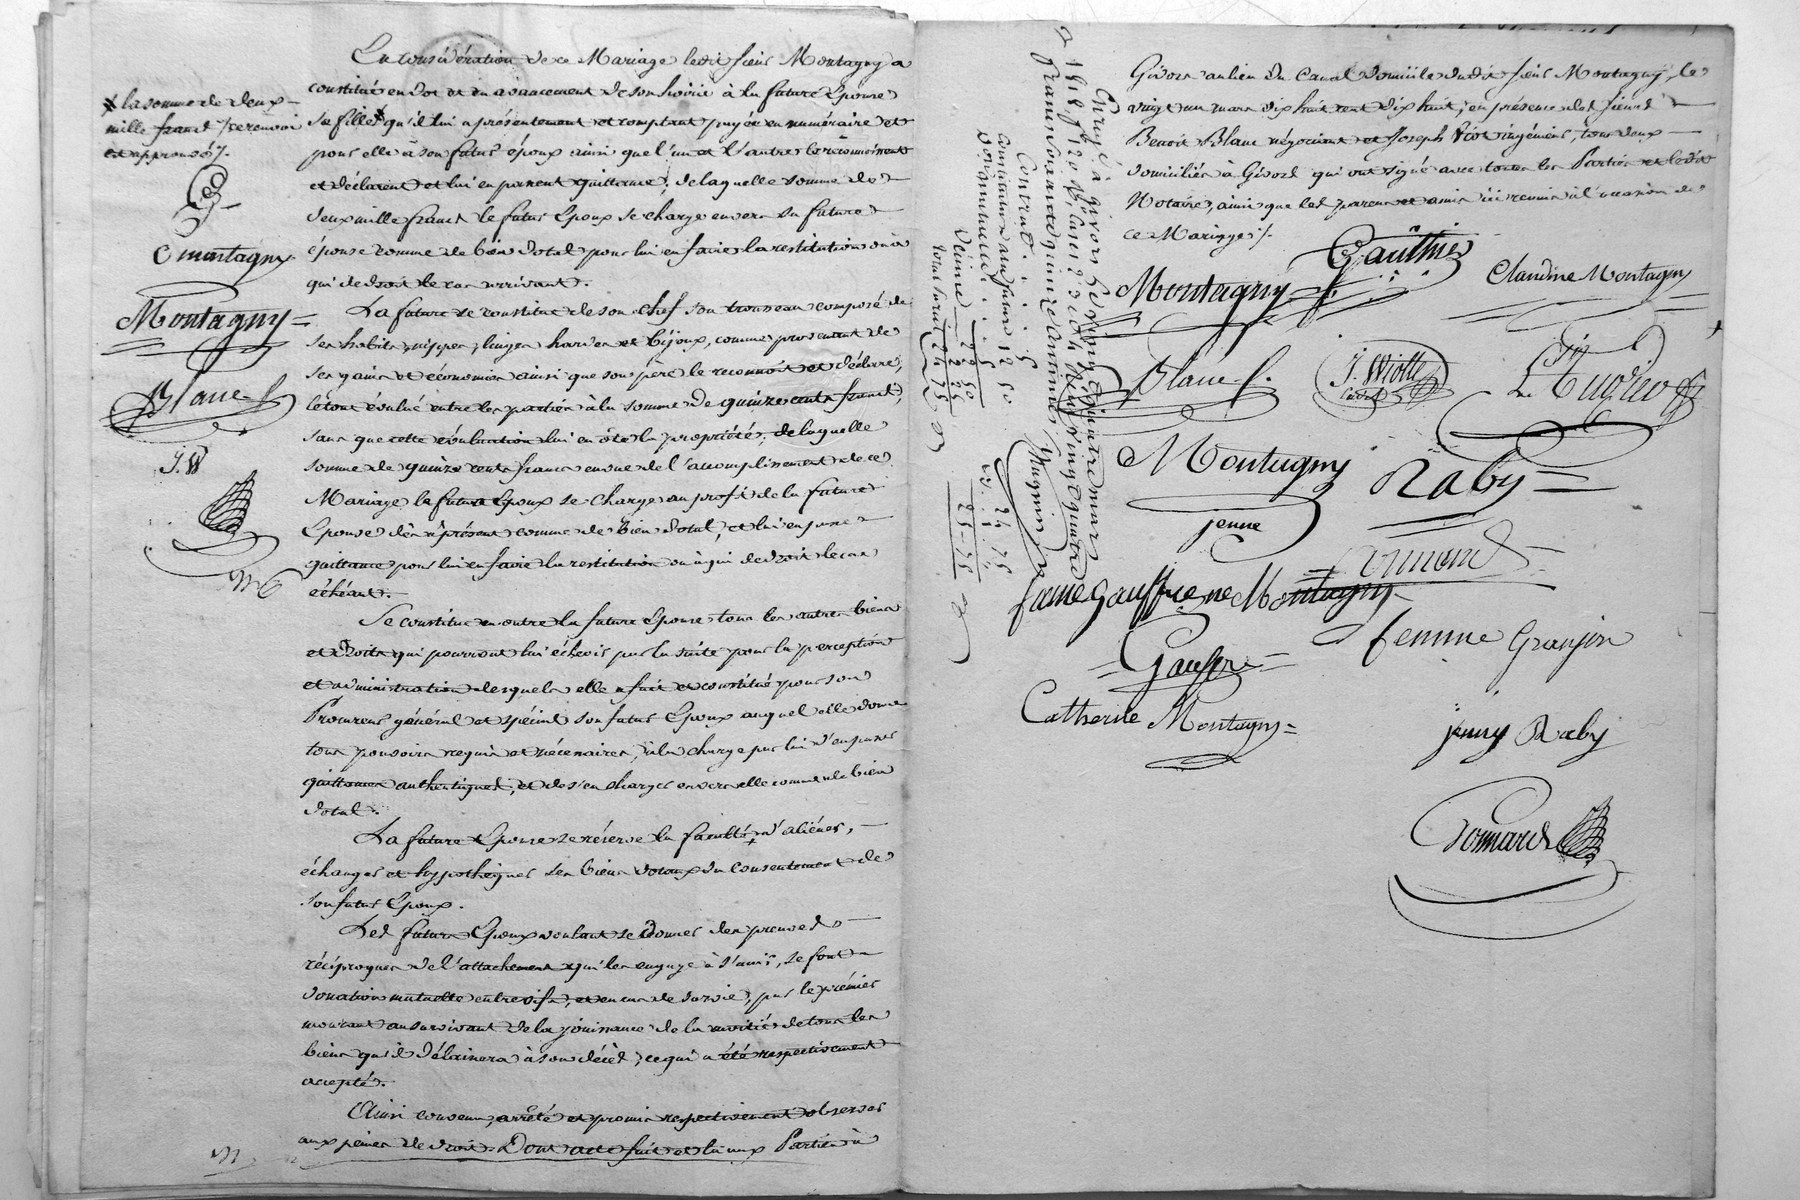 En considération de ce Mariage ledit sieur Montagny a
constitué en dot et en avancement de son hoirie à la future Epouse
sa fille qu'il lui a présentement et comptant payée en numéraire et
pour elle à son futur époux ainsi que l'un et l'autre le reconnoissent
et déclarent et lui en passent quittance; de laquelle somme de
deux mille francs le futur Epoux se charge envers sa future
épouse comme de bien dotal pour lui en faire la restitution ou à
qui de droit le cas arrivant.
La future se constitue de son chef son trousseau composé de
ses habits, nippes, linges hardes et bijoux, comme provenant de
ses gains et économies ainsi que son père le reconnoit et déclare,
le tout évalué entre les parties à la somme de quinze cents francs
sans que cette évaluation lui en ôte la propriété; de laquelle
somme de quinze cents francs en vue de l'accomplissement de ce
Mariage le futur Epoux se charge au profit de la future
Epouse dès à présent comme de bien dotal, et lui en passe
quittance pour lui en faire la restitution ou à qui de droit le cas
échéant.
Se constitue en outre la future Epouse tous les autres biens
et droits qui pourront lui échoir par la suite pour la perception
et administration desquels elle a fait et constitué pour son
Procureur général et spécial son futur Epoux auquel elle donne
tous pouvoirs requis et nécessaires, à la charge par lui d'en passer
quittances authentiques, et de s'en charger envers elle comme de bien
dotal.
La future Epouse se réserve la faculté d'aliéner,
échanger et hypothéquer ses biens dotaux du consentement de
son futur Epoux.
Les futurs Epoux voulant se donner des preuves
réciproques de l'attachement qui les engage à s'unir, se font
donation mutuelle entrevifs, et en cas de survie, par le prémier
mourant au survivant de la jouissance de la moitié de tous les
biens qu'il délaissera à son décès, ce qui a été respectivement
accepté.
Ainsi convenu, arrêté et promis respectivement observer
aux peines de droit. Dont acte fait et lu aux Parties à
la somme de deux
mille francs ce renvoi
est approuvé
C montagny
Montagny
Blanc
J. W
Givors au lieu du Canal domicile dudit sieur Montagny, le
vingt un mars dix huit cent dix huit, en présence des sieurs
Benoit Blanc négociant et Joseph Viot ingénieur, tous deux
domiciliés à Givors qui ont signé avec toutes les Parties et ledit
Notaire, ainsi que les parens et amis ici réunis à l'occasion de
ce Mariage
Gauthier
Montagny
Claudine Montagny
Blanc
J. Wiotte
Montagny
jeune
Raby
fame Gauffre ne Montagny
femme Granjon
Gauffre
Catherine Montagny
jenny Raby
Enregé à givors le vingt quatre mars
1818
Contrat
Décime